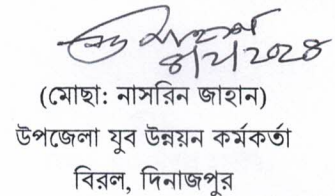 ৪/২/২০২৪
(মোছা: নাসরিন জাহান)
উপজেলা যুব উন্নয়ন কর্মকর্তা
বিরল, দিনাজপুর